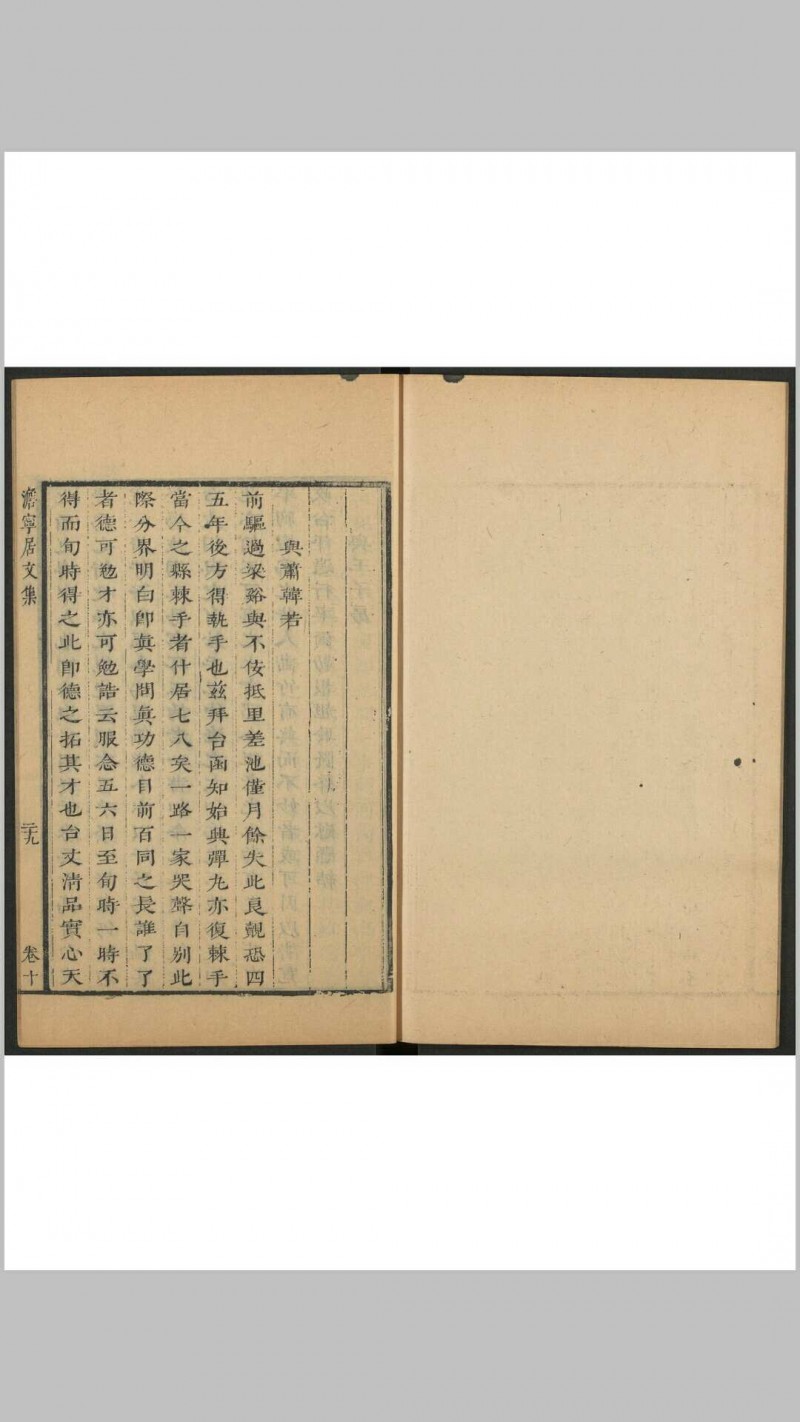 與蕭韓若
前驅過梁谿與不佞抵里差池僅月餘失此良覿恐四
五年後方得執手也茲拜台函知始興彈丸亦復棘手
當今之縣棘手者什居七八矣一路一家哭聲自別此
際分界明白卽眞學問眞功德目前百同之長誰了了
者德可勉才亦可勉誥云服念五六日至旬時一時不
得而旬時得之此卽德之拓其才也台丈淸品實心天
澹寧居文集
二九
卷十